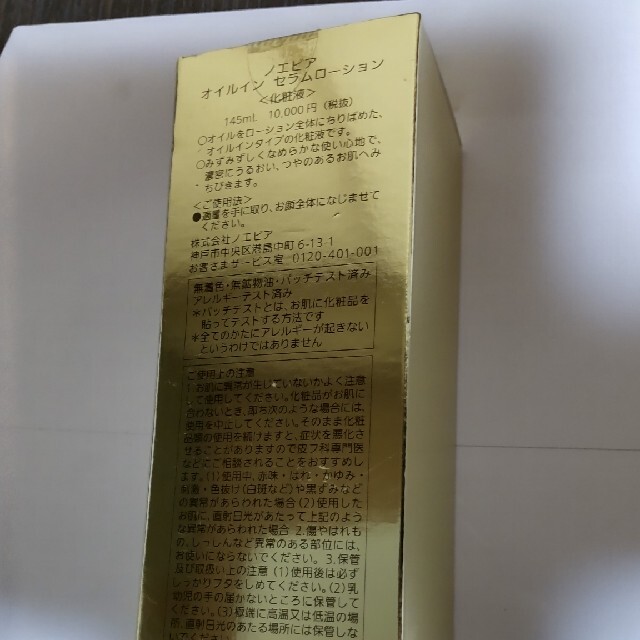 ノエビア
オイルイン セラムローション
<化粧液>
145mL 10,000円(税抜)
○オイルをローション全体にちりばめた、
オイルインタイプの化粧液です。
○みずみずしくなめらかな使い心地で、
濃密にうるおい、つやのあるお肌へみ
ちびきます。
<ご使用法>
●適量を手に取り、お顔全体になじませて
ください。
株式会社ノエビア
神戸市中央区港島中町6-13-1
お客さまサービス室 0120-401-001
無着色・無鉱物油・パッチテスト済み
アレルギーテスト済み
*パッチテストとは、お肌に化粧品を
貼ってテストする方法です
*全てのかたにアレルギーが起きない
というわけではありません
ご使用上の注意
1.お肌に異常が生じていないかよく注意
して使用してください。化粧品がお肌に
合わないとき、即ち次のような場合には、
使用を中止してください。そのまま化粧
品類の使用を続けますと、症状を悪化さ
せることがありますので皮フ科専門医
などにご相談されることをおすすめし
ます。(1)使用中、赤味・はれ・かゆみ・
刺激・色抜け(白斑など)や黒ずみなど
の異常があらわれた場合(2)使用した
お肌に、直射日光があたって上記のよう
な異常があらわれた場合 2.傷やはれも
の、しっしんなど異常のある部位には、
お使いにならないでください。3.保管
及び取扱い上の注意(1)使用後は必ず
しっかりフタをしめてください。(2)乳
幼児の手の届かないところに保管して
ください。(3)極端に高温又は低温の場
所、直射日光のあたる場所には保管しな
いでください。